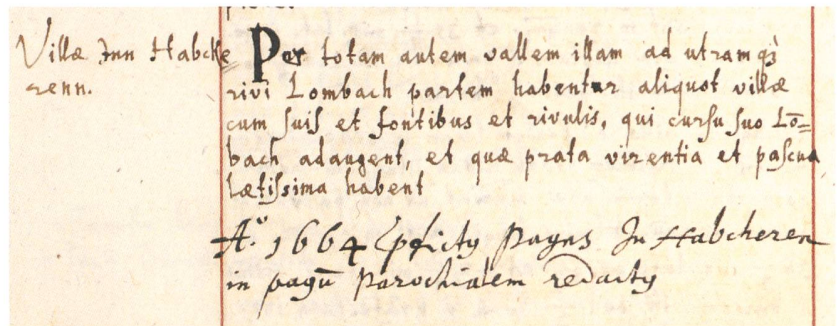 Villæ Inn Habcke=
renn.
Per totam autem vallem illam ad utramq3
rivi Lombach partem habentur aliquot villæ
cum suis et fontibus et rivulis, qui cursu suo Lō=
bach adaugent, et quæ prata virentia et pascua
lætissima habent
Aº. 1664 pagus In Habcheren
in pagū parochialem redactus